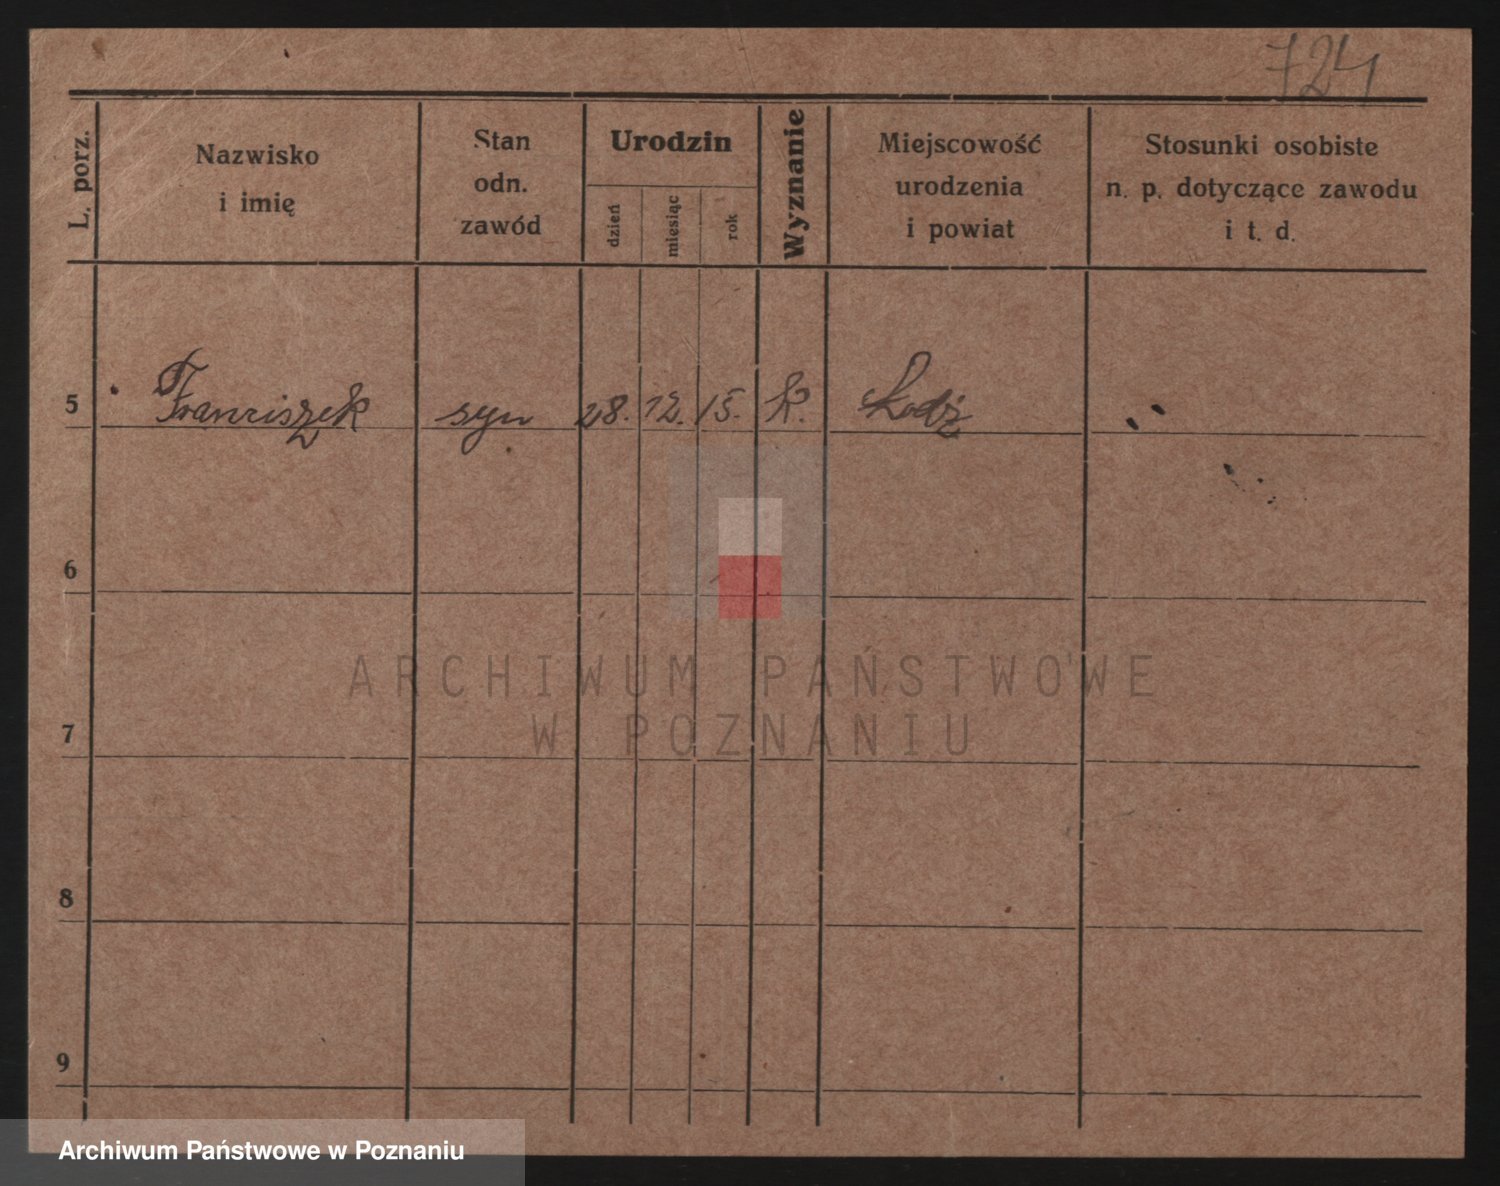 724
L. porz.
Nazwisko
i imię
Stan
odn.
zawód
Urodzin
dzień
miesiąc
rok
Wyznanie
Miejscowość
urodzenia
i powiat
Stosunki osobiste
n. p. dotyczące zawodu
i t. d.
5 Franciszek syn 28. 12. 15. k. Łodź
6
7
8
9
ARCHIWUM PAŃSTWOWE
W POZNANIU
Archiwum Państwowe w Poznaniu